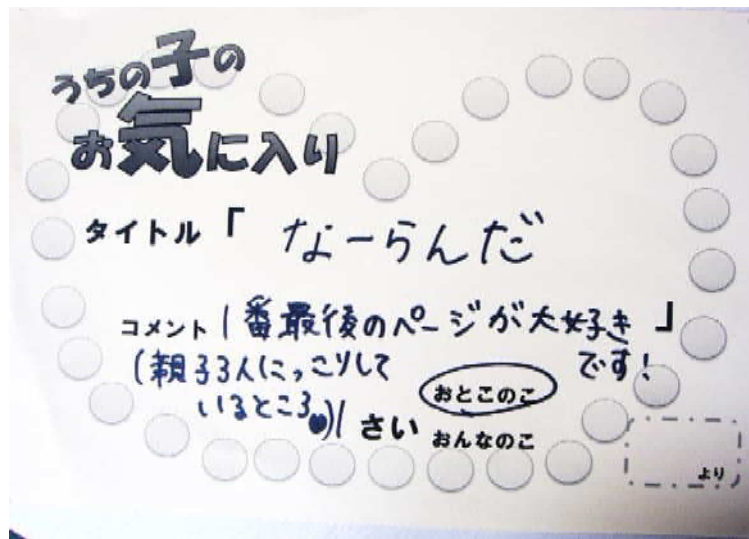 うちの子の
お気に入り
タイトル「 なーらんだ
コメント 1番最後のページが大好き 」
(親子3人にっこりして です!
いるところ♥)
1 さい おとこのこ
おんなのこ
より